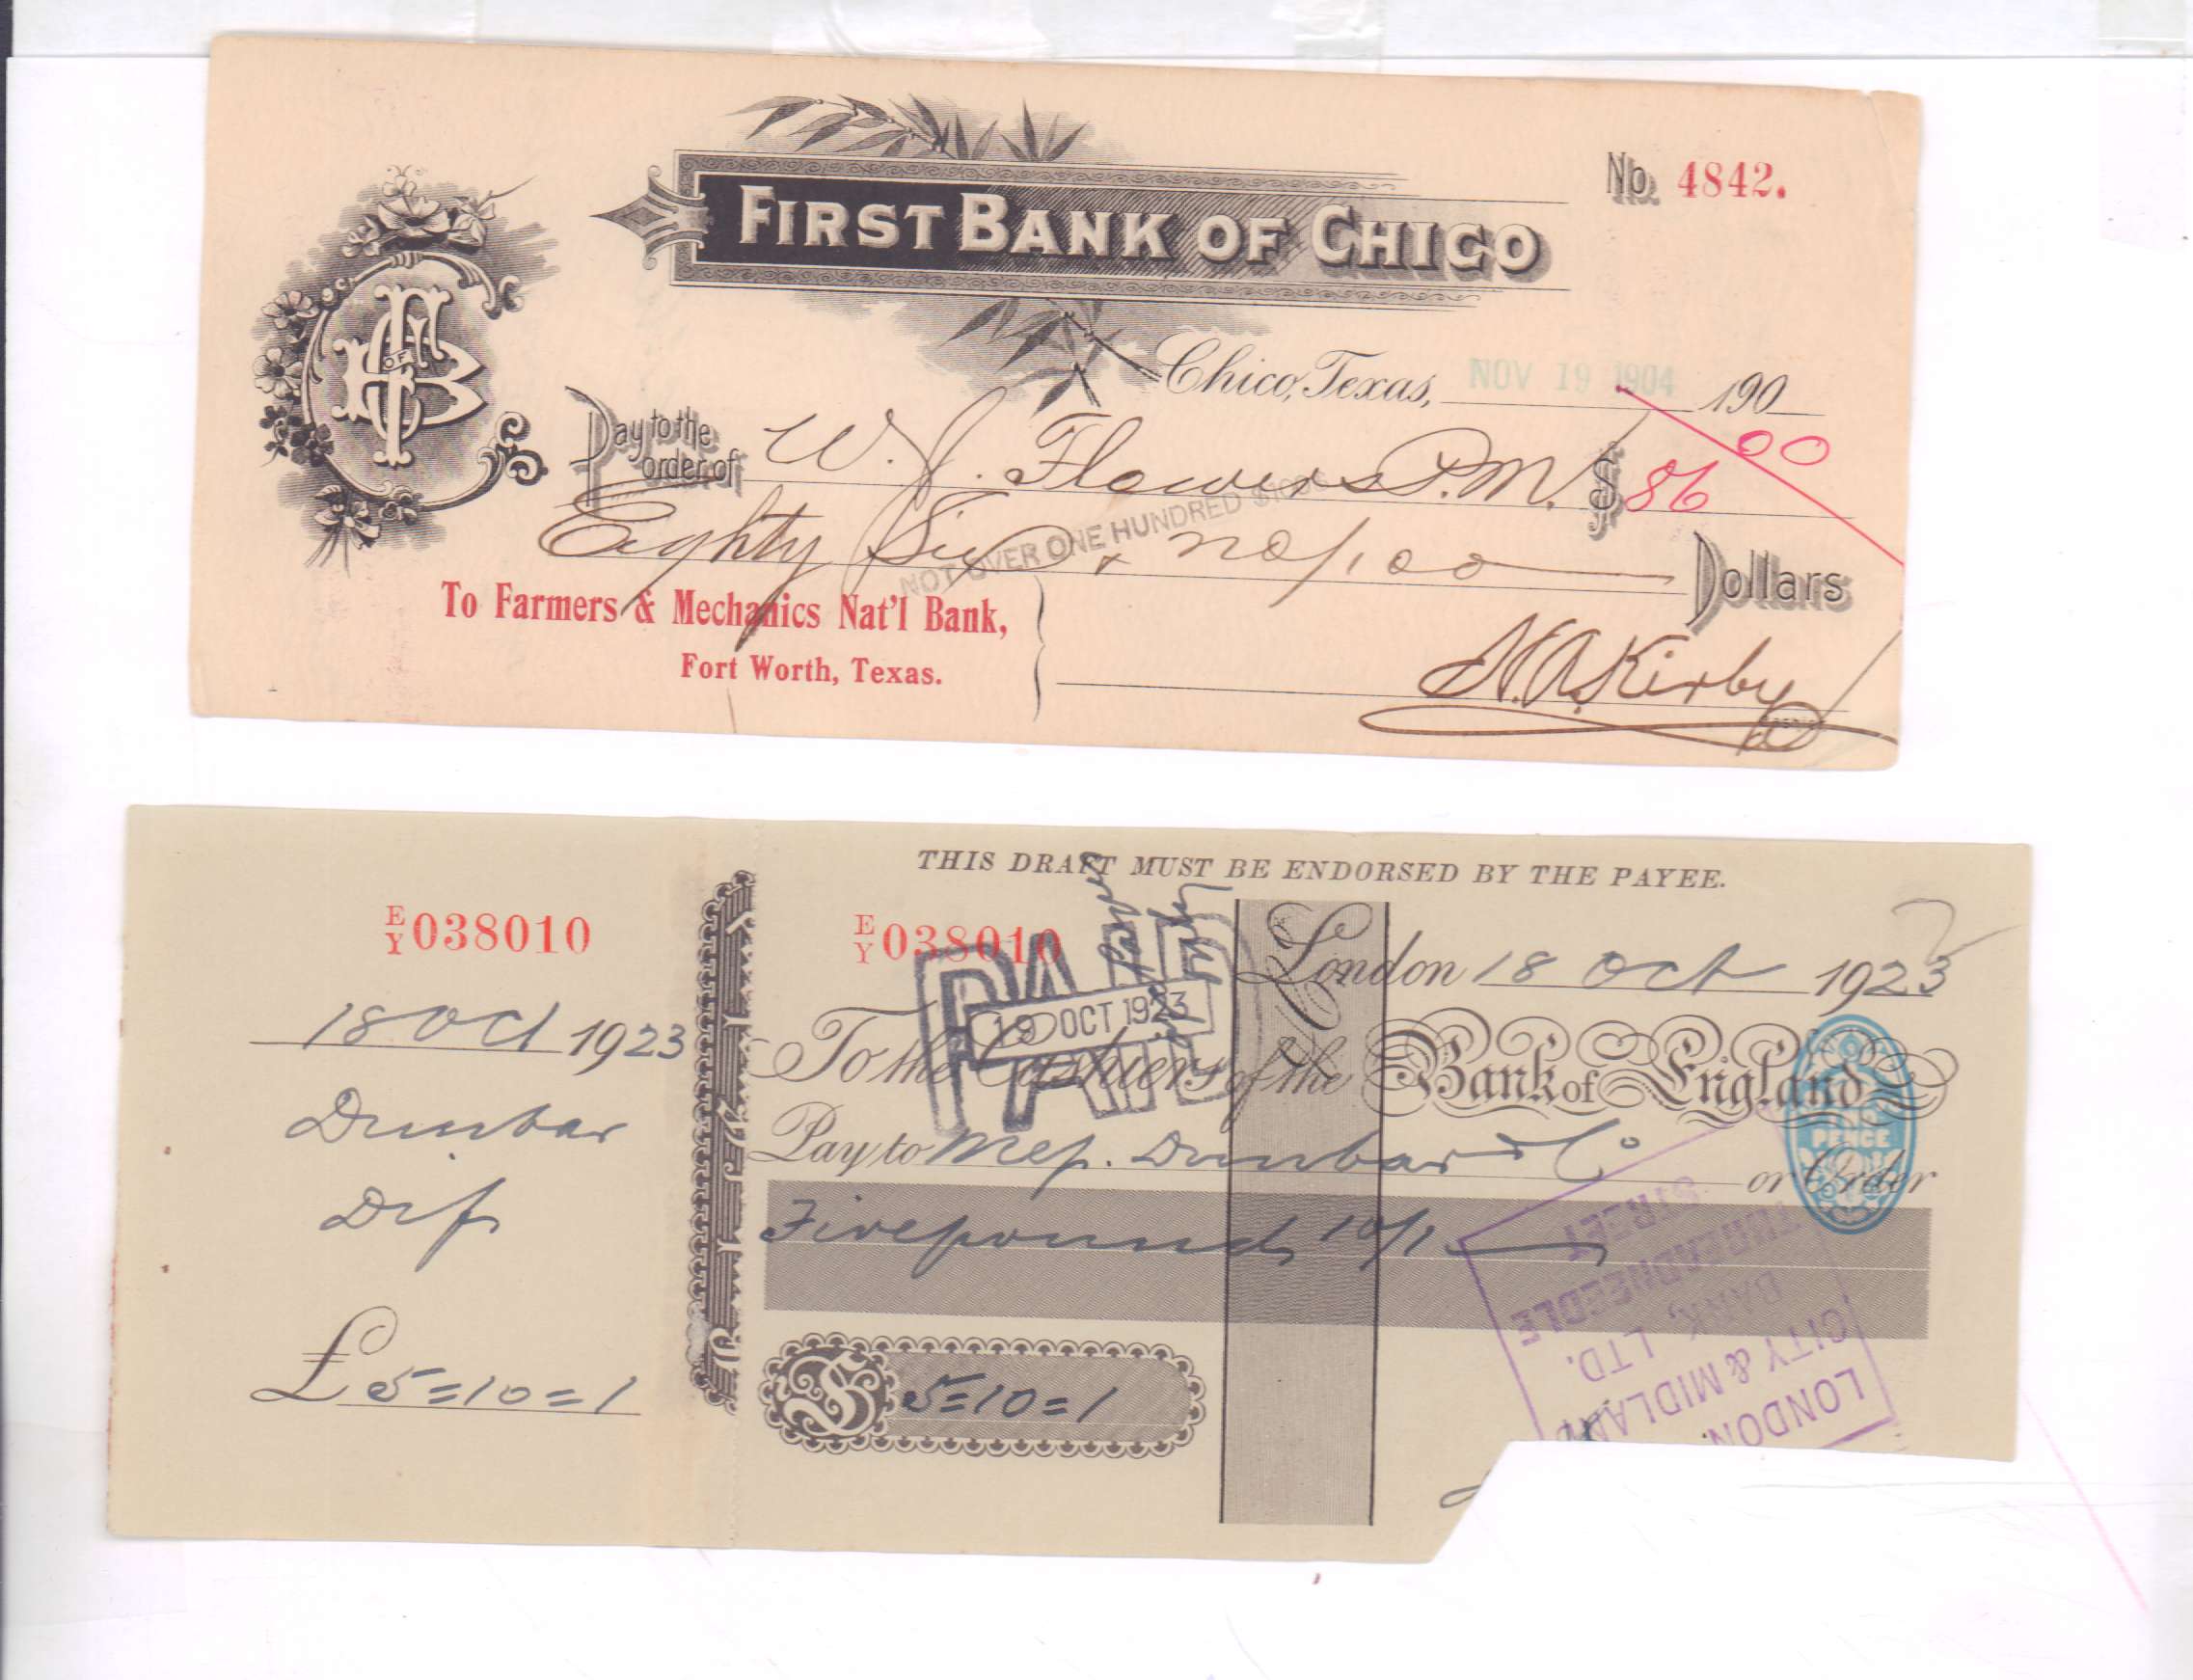 FIRST BANK OF CHICO
No. 4842.
Chico, Texas, NOV 19 1904 190
Pay to the order of W. J. Flowers P.M. $ 86 00
Eighty Six & no/100 Dollars
NOT OVER ONE HUNDRED $100$
To Farmers & Mechanics Nat'l Bank,
Fort Worth, Texas.
F B OF C
THIS DRAFT MUST BE ENDORSED BY THE PAYEE.
E/Y 038010
18 Oct 1923
Dunbar
Dif
£ 5=10=1
E/Y 038010
London 18 Oct 1923
PAID
19 OCT 1923
PAID
To the Cashiers of the Bank of England
Pay to Mess. Dunbar & Co or Order
Five pounds 10/1
£ 5=10=1
PENCE
LONDON
CITY & MIDLAND
BANK, LTD.
THREADNEEDLE
STREET